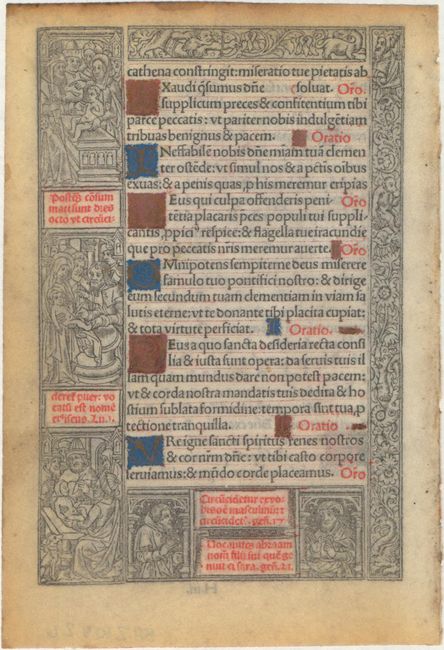 cathena constringit: miseratio tue pietatis ab
Xaudi q̃sumus dñe soluat. Oro.
supplicum preces & confitentium tibi
parce peccatis: vt pariter nobis indulgẽtiam
tribuas benignus & pacem. Oratio
INeffabilẽ nobis dñe miam tuã clemen
ter ostẽde: vt simul nos & a pctis oibus
exuas: & a penis quas, p his meremur eripias
DEus qui culpa offenderis peni- Oro
tẽtia placaris pces populi tui suppli-
cantis, ppici⁹ respice: & flagella tue iracundie
que pro peccatis nr̃is meremur auerte. Oro
OMnipotens sempiterne deus miserere
famulo tuo pontifici nostro: & dirige
eum secundum tuam clementiam in viam sa
lutis eterne: vt te donante tibi placita cupiat:
& tota virtute perficiat. Oratio.
DEus a quo sancta desideria recta consi
lia & iusta sunt opera: da seruis tuis il
lam quam mundus dare non potest pacem:
vt & corda nostra mandatis tuis dedita & ho
stium sublata formidine: tempora sint tua, p
tectione tranquilla. Oratio.
VRe igne sancti spiritus renes nostros
& cor nr̃m dñe: vt tibi casto corpore
seruiamus: & mũdo corde placeamus. Oro
Postq̃ cõsum
mati sunt dies
octo vt circũci:
deret puer: vo
catũ est nomẽ
Circũcidetur ex vo
bis oẽ masculinũ:
circũcidet. gen̄. 17
Vocauitq̃ abraam
nomẽ filii sui quẽ ge
nuit ei sara. gen̄. 21.